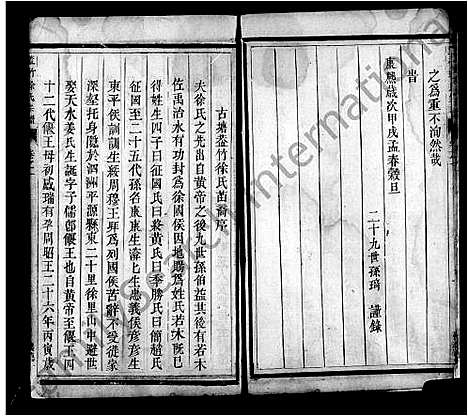 之爲重不洵然哉
昔
康熙歲次甲戌孟春穀旦
二十九世孫琦 謹錄
古塘蓋竹徐氏苗裔序
夫徐氏之先出自黃帝之後九世孫伯益其後有若木
佐禹治水有功封爲徐國侯因地賜爲姓氏若木既已
得姓生四子曰征國氏曰終黃氏曰季勝氏曰簡趙氏
征國至二十五代孫名康康生濬匕生忠義侯彦彦生
東平侯訓訓生嚴周穆王拜爲列國侯苦辭不受從象
深壑托身隱於泗洲平源縣東二十里徐里山中避世
娶天水姜氏生誕字子儒卽偃王也自黃帝至偃王四
十二代偃王母初感瑞有孕周昭王二十六年丙寅歲